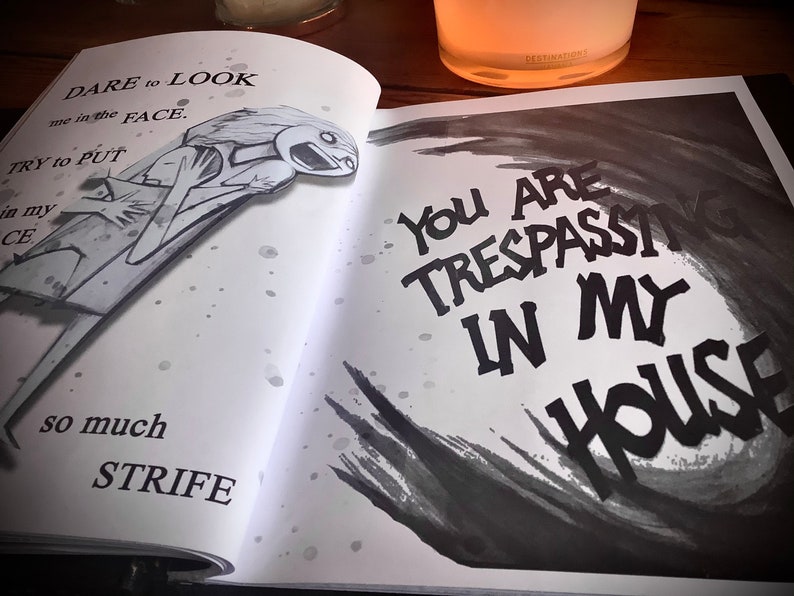 DARE to LOOK
me in the FACE.
TRY to PUT
in my
CE
so much
STRIFE
YOU ARE
TRESPASSING
IN MY
HOUSE
DESTINATIONS